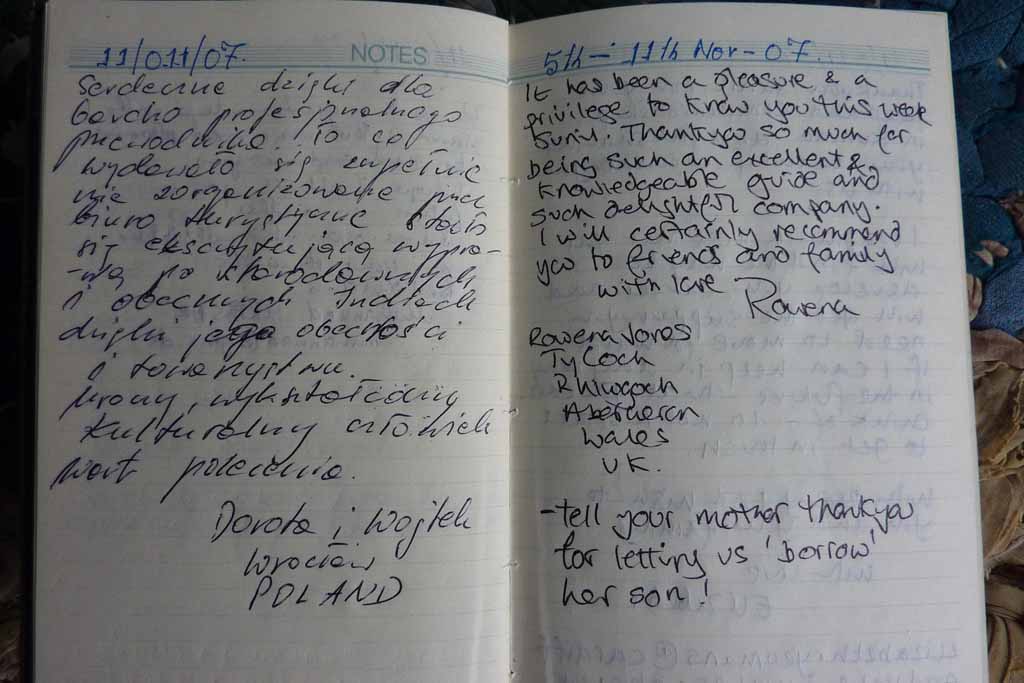 11/011/07.
NOTES
Serdeczne dzięki dla
bardzo profesjonalnego
przewodnika. To co
wydawało się zupełnie
nie zorganizowane przez
biuro turystyczne stało
się ekscytującą wypra-
-wą po
i obecnych Indiach
dzięki jego obecności
i towarzystwu.
wykształcony
kulturalny człowiek
wart polecenia.
Dorota i Wojtek
Wrocław
POLAND
5th - 11th Nov - 07.
It has been a pleasure & a
privilege to know you this week
Sunil. Thankyou so much for
being such an excellent &
knowledgeable guide and
such delightful company.
I will certainly recommend
you to friends and family
with love Rowena
Rowena Jones
Ty Coch
Rhiwgoch
Aberaeron
Wales
UK.
-tell your mother thankyou
for letting us 'borrow'
her son!